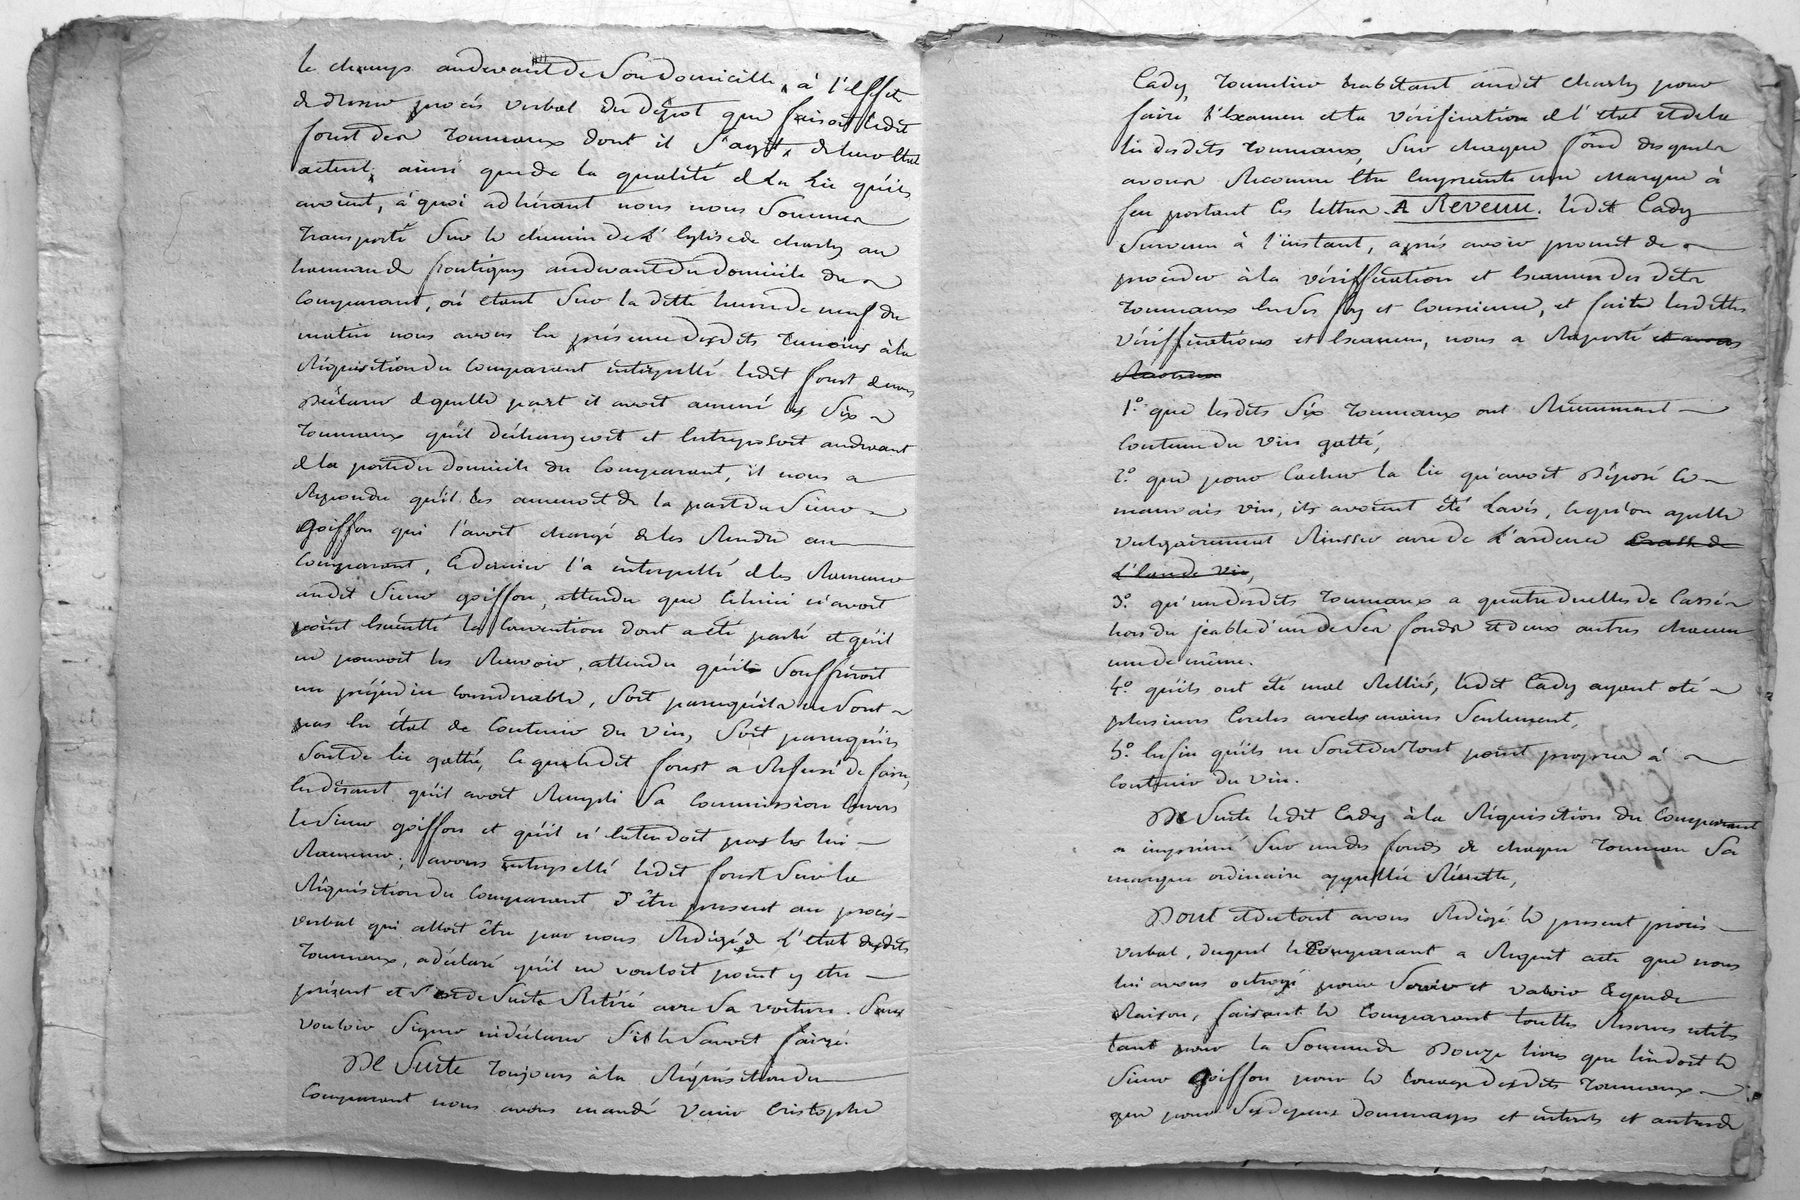 le champ audevant de Son domicille, à l'effet
de dresser procès verbal du dépot que faisoit ledit
foust des Tonneaux dont il S'agit, de leur Etat
actuel, ainsi que de la qualité de La Lie qu'ils
avoient, à quoi adhérant nous nous Sommes
Transporté Sur le chemin de L'Eglise de charly au
hameau de frontigny audevant du Domicile du
Comparant, où etant Sur la ditte heure de neuf du
matin nous avons En présence desdits Temoins à la
Réquisition du Comparant interpellé ledit foust de nous
Déclarer de quelle part il avoit amené les Six
Tonneaux qu'il déchargeoit et Entreposoit audevant
de la porte du Domicile du Comparant, il nous a
Repondu qu'il les amenoit de la part du Sieur
Goiffon qui l'avoit chargé de les Rendre au
Comparant, Ce dernier l'a interpellé de les Ramener
audit Sieur goiffon, attendu que Celuici n'avoit
point Exécutté la Convention dont a été parlé et qu'il
ne pouvoit les Recevoir, attendu qu'il Souffriroit
un préjudice Considerable, Soit parcequ'ils ne Sont
pas En état de Contenir du vin, Soit parcequ'ils
Sont de lie gatté, Ce que ledit foust a Refusé de faire,
En disant qu'il avoit Rempli Sa Commission Envers
le Sieur goiffon et qu'il n'Entendoit pas les lui
Ramener; avons interpellé ledit foust Sur la
Réquisition du Comparant d'être present au procès
verbal qui alloit être par nous Redigé de L'etat desdits
Tonneaux, a déclaré qu'il ne vouloit point y etre
présent et S'est de Suite Retiré avec Sa voiture. Sans
vouloir Signer ni déclarer S'il le Savoit faire.
De Suite Toujours à la Réquisition du
Comparant nous avons mandé Venir Cristophe
Cady, Tonnelier habitant audit Charly pour
faire l'Examen et la vérification de l'état et de la
lie desdits Tonneaux, Sur chaque fond desquels
avons Reconnu Etre Empreinte une Marque à
feu portant les lettres A Reveuu. ledit Cady
Survenu à l'instant, après avoir promit de
proceder à la vériffication et Examen des dits
Tonneaux En Sa foy et Conscience, et faite lesdittes
vériffications et Examen, nous a Raporté et avons
Reconnu
1.° que lesdits Six Tonneaux ont Récemment
Contenu du vin gatté,
2.° que pour Cacher la lie qu'avoit Déposé Ce
mauvais vin, ils avoient été Lavés, Ce qu'on apelle
vulgairement Rinsser avec de L'ardence
L'Eau de vie,
3.° qu'un desdits Tonneaux a quatre duelles de Cassés
hors du jeable d'un de Ses fonds et deux autres chacun
une de même.
4.° qu'ils ont été mal Relliés, ledit Cady ayant oté
plusieurs Cercles avec les mains Seulement,
5.° Enfin qu'ils ne Sont du Tout point propres à
Contenir du vin.
De Suite ledit Cady à la Réquisition du Comparant
a imprimé Sur un des fonds de chaque Tonneau Sa
marque ordinaire appellée Rénette,
Dont et du tout avons Redigé le present procès
verbal, duquel le Comparant a Requit acte que nous
lui avons octroyé pour Servir et valoir Ce que de
Raison, faisant le Comparant Touttes Reserves utiles
tant pour la Somme de Douze livres que lui doit le
Sieur Goiffon pour le Louage desdits Tonneaux
que pour Ses depens dommages et interets et autres de